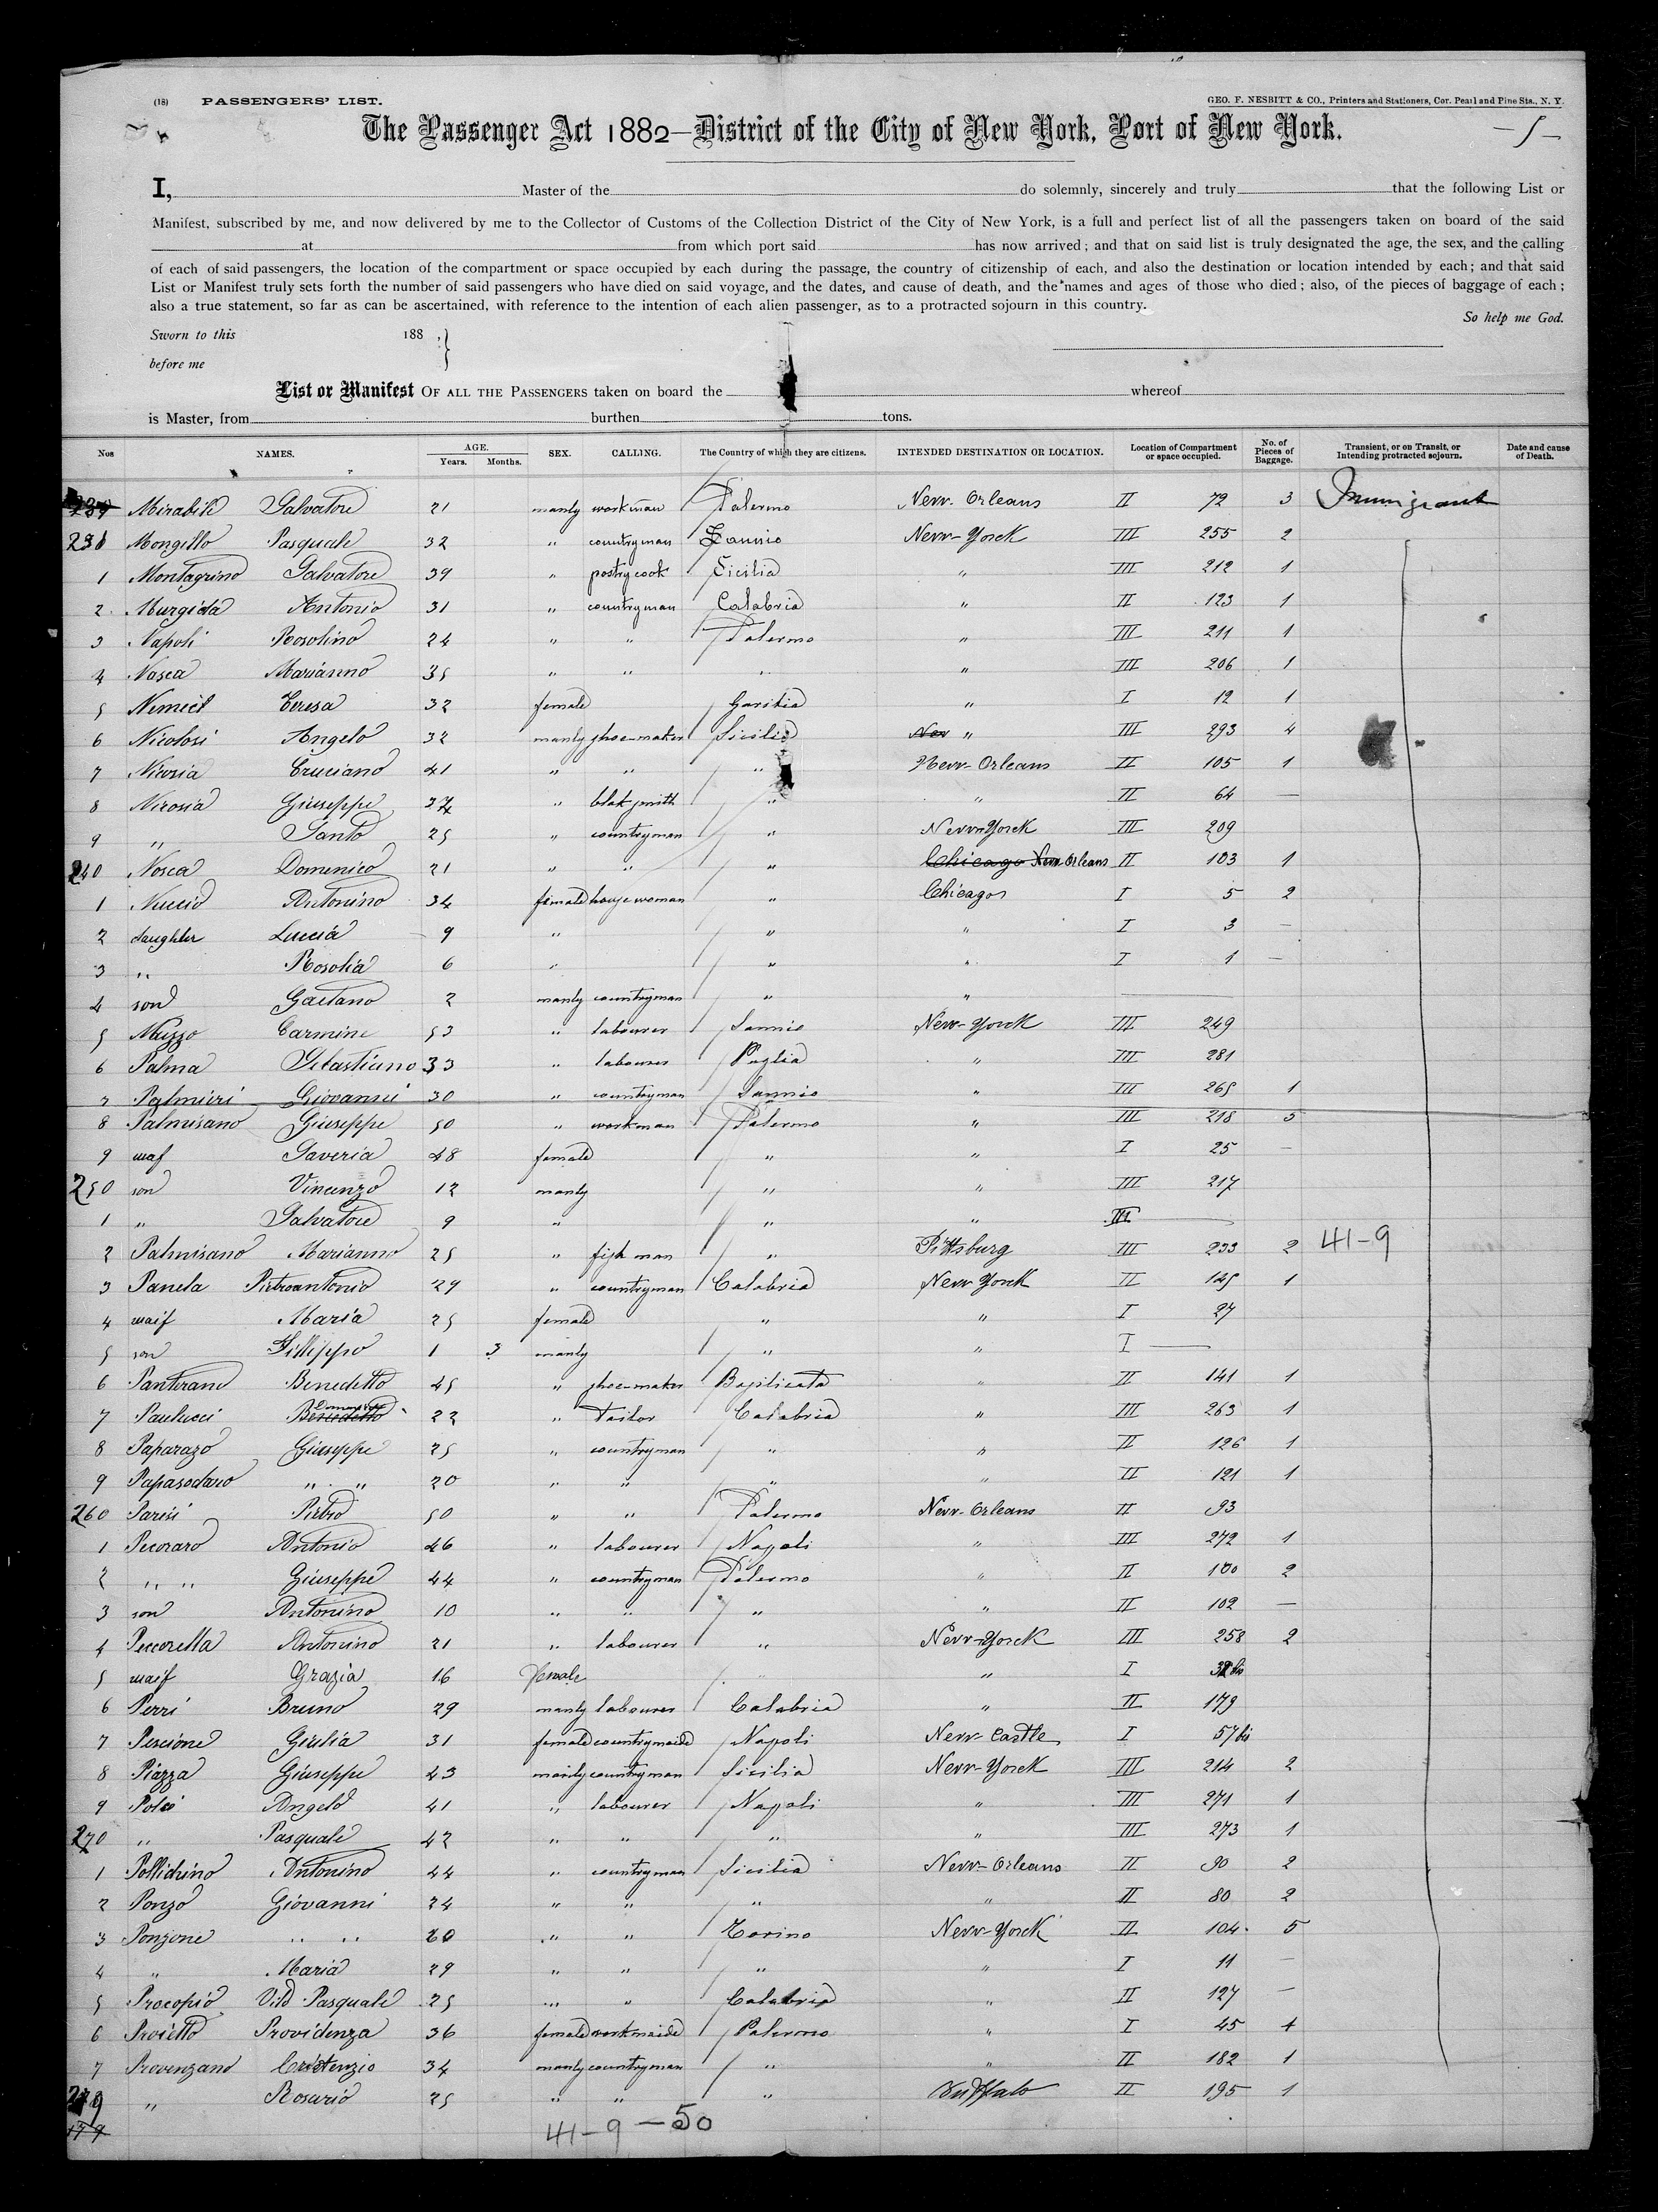 (18) PASSENGERS' LIST. GEO. F. NESBITT & CO., Printers and Stationers, Cor. Pearl and Pine Sts., N. Y.
The Passenger Act 1882—District of the City of New York, Port of New York. —5—
I, Master of the do solemnly, sincerely and truly that the following List or
Manifest, subscribed by me, and now delivered by me to the Collector of Customs of the Collection District of the City of New York, is a full and perfect list of all the passengers taken on board of the said
at from which port said has now arrived; and that on said list is truly designated the age, the sex, and the calling
of each of said passengers, the location of the compartment or space occupied by each during the passage, the country of citizenship of each, and also the destination or location intended by each; and that said
List or Manifest truly sets forth the number of said passengers who have died on said voyage, and the dates, and cause of death, and the names and ages of those who died; also, of the pieces of baggage of each;
also a true statement, so far as can be ascertained, with reference to the intention of each alien passenger, as to a protracted sojourn in this country.
So help me God.
Sworn to this 188 , }
before me
List or Manifest OF ALL THE PASSENGERS taken on board the whereof
is Master, from burthen tons.
Nos NAMES. AGE. Years. Months. SEX. CALLING. The Country of which they are citizens. INTENDED DESTINATION OR LOCATION. Location of Compartment or space occupied. No. of Pieces of Baggage. Transient, or on Transit, or Intending protracted sojourn. Date and cause of Death.
Mirabile Salvatore 21 manly workman Palermo New-Orleans II 72 3 Immigrant
Mongillo Pasquale 32 " countryman Sannio New-Yorck III 255 2
1 Montagrino Salvatore 39 " postry cook Sicilia " III 212 1
2 Murgida Antonio 31 " countryman Calabria " II 123 1
3 Napoli Rosolino 24 " " Palermo " III 211 1
4 Nasca Marianno 35 " " " " III 206 1
5 Teresa 32 female " I 12 1
6 Nicolosi Angelo 32 manly shoe-maker Sicilia New " III 293 4
7 Nicosia Cruciano 41 " " " New-Orleans II 105 1
8 Nicosia Giuseppe " blaksmith " " II 64 —
9 " Santo 25 " countryman " New-Yorck III 209
240 Nosca Domenico 21 " " " Chicago New Orleans II 103 1
1 Nuccio Antonino 34 female house woman " Chicago I 5 2
2 daughter Luccia 9 " " " I 3 —
3 " Rosolia 6 " " " I 1 —
4 son Gaetano 2 manly countryman " "
5 Muzzo Carmine 53 " labourer Sannio New-Yorck III 249
6 Palma Sebastiano 33 " labourer Puglia " III 281
7 Palmieri Giovanni 30 " countryman Sannio " III 265 1
8 Palmisano Giuseppe 50 " workman Palermo " III 218 5
9 waf Saveria 48 female " " I 25 —
250 son Vincenzo 12 manly " " III 217
1 " Salvatore 9 " " " III —
2 Palmisano Marianno 25 " fish man " Pittsburg III 233 2 41-9
3 Panela Pietroantonio 29 " countryman Calabria New Yorck II 125 1
4 waif Maria 25 female " " I 27
5 son Fillippo 1 3 manly " " I —
6 Panterano Benedetto 45 " shoe-maker Basilicata " II 141 1
7 Paulucci Benedetto 22 " Tailor Calabria " III 263 1
8 Paparazo Giuseppe 25 " countryman " " II 126 1
9 Papasodaro " " 20 " " " " II 121 1
260 Parisi Pietro 50 " " Palermo New-Orleans II 93
1 Pecoraro Antonio 46 " labourer Napoli " III 272 1
2 " " Giuseppe 44 " countryman Palermo " II 100 2
3 son Antonino 10 " " " " II 102 —
4 Peccorella Antonino 21 " labourer " New-Yorck III 258 2
5 waif Grazia 16 female " " I
6 Perri Bruno 29 manly labourer Calabria " II 179
7 Pescione Giulia 31 female countrymaide Napoli New-Castle I 57 bis
8 Piazza Giuseppe 43 manly countryman Sicilia New-Yorck III 214 2
9 Angelo 41 " labourer Napoli " III 271 1
270 " Pasquale 42 " " " " III 273 1
1 Pollichino Antonino 44 " countryman Sicilia New-Orleans II 90 2
2 Ponzo Giovanni 24 " " " " II 80 2
3 Ponzone " " " " Torino New-Yorck II 104 5
4 " Maria 29 " " " " I 11 —
5 Procopio Vito Pasquale 25 " " Calabria " II 127 —
6 Proietto Providenza 36 female workmaide Palermo " I 45 1
7 Provenzano 34 manly countryman " " II 182 1
" Rosario 25 " " " Buffalo II 195 1
41-9-50